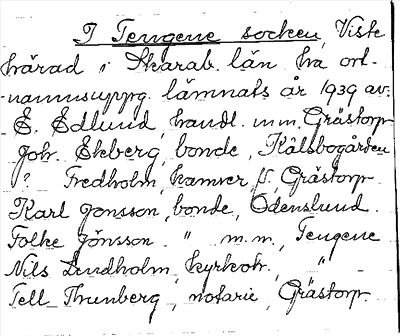 I Tengene socken, Viste
härad i Skarab. län ha ort-
-namnsuppg. lämnats år 1939 av:
E. Edlund, handl. m.m. Grästorp
Joh. Ekberg, bonde, Kålsbogården
? Fredholm, kamrer, Grästorp
Karl Jonsson, bonde, Odenslund.
Folke Jönsson " m.m., Tengene
Nils Lindholm, kyrkoh. "
Tell Thunberg, notarie, Grästorp.